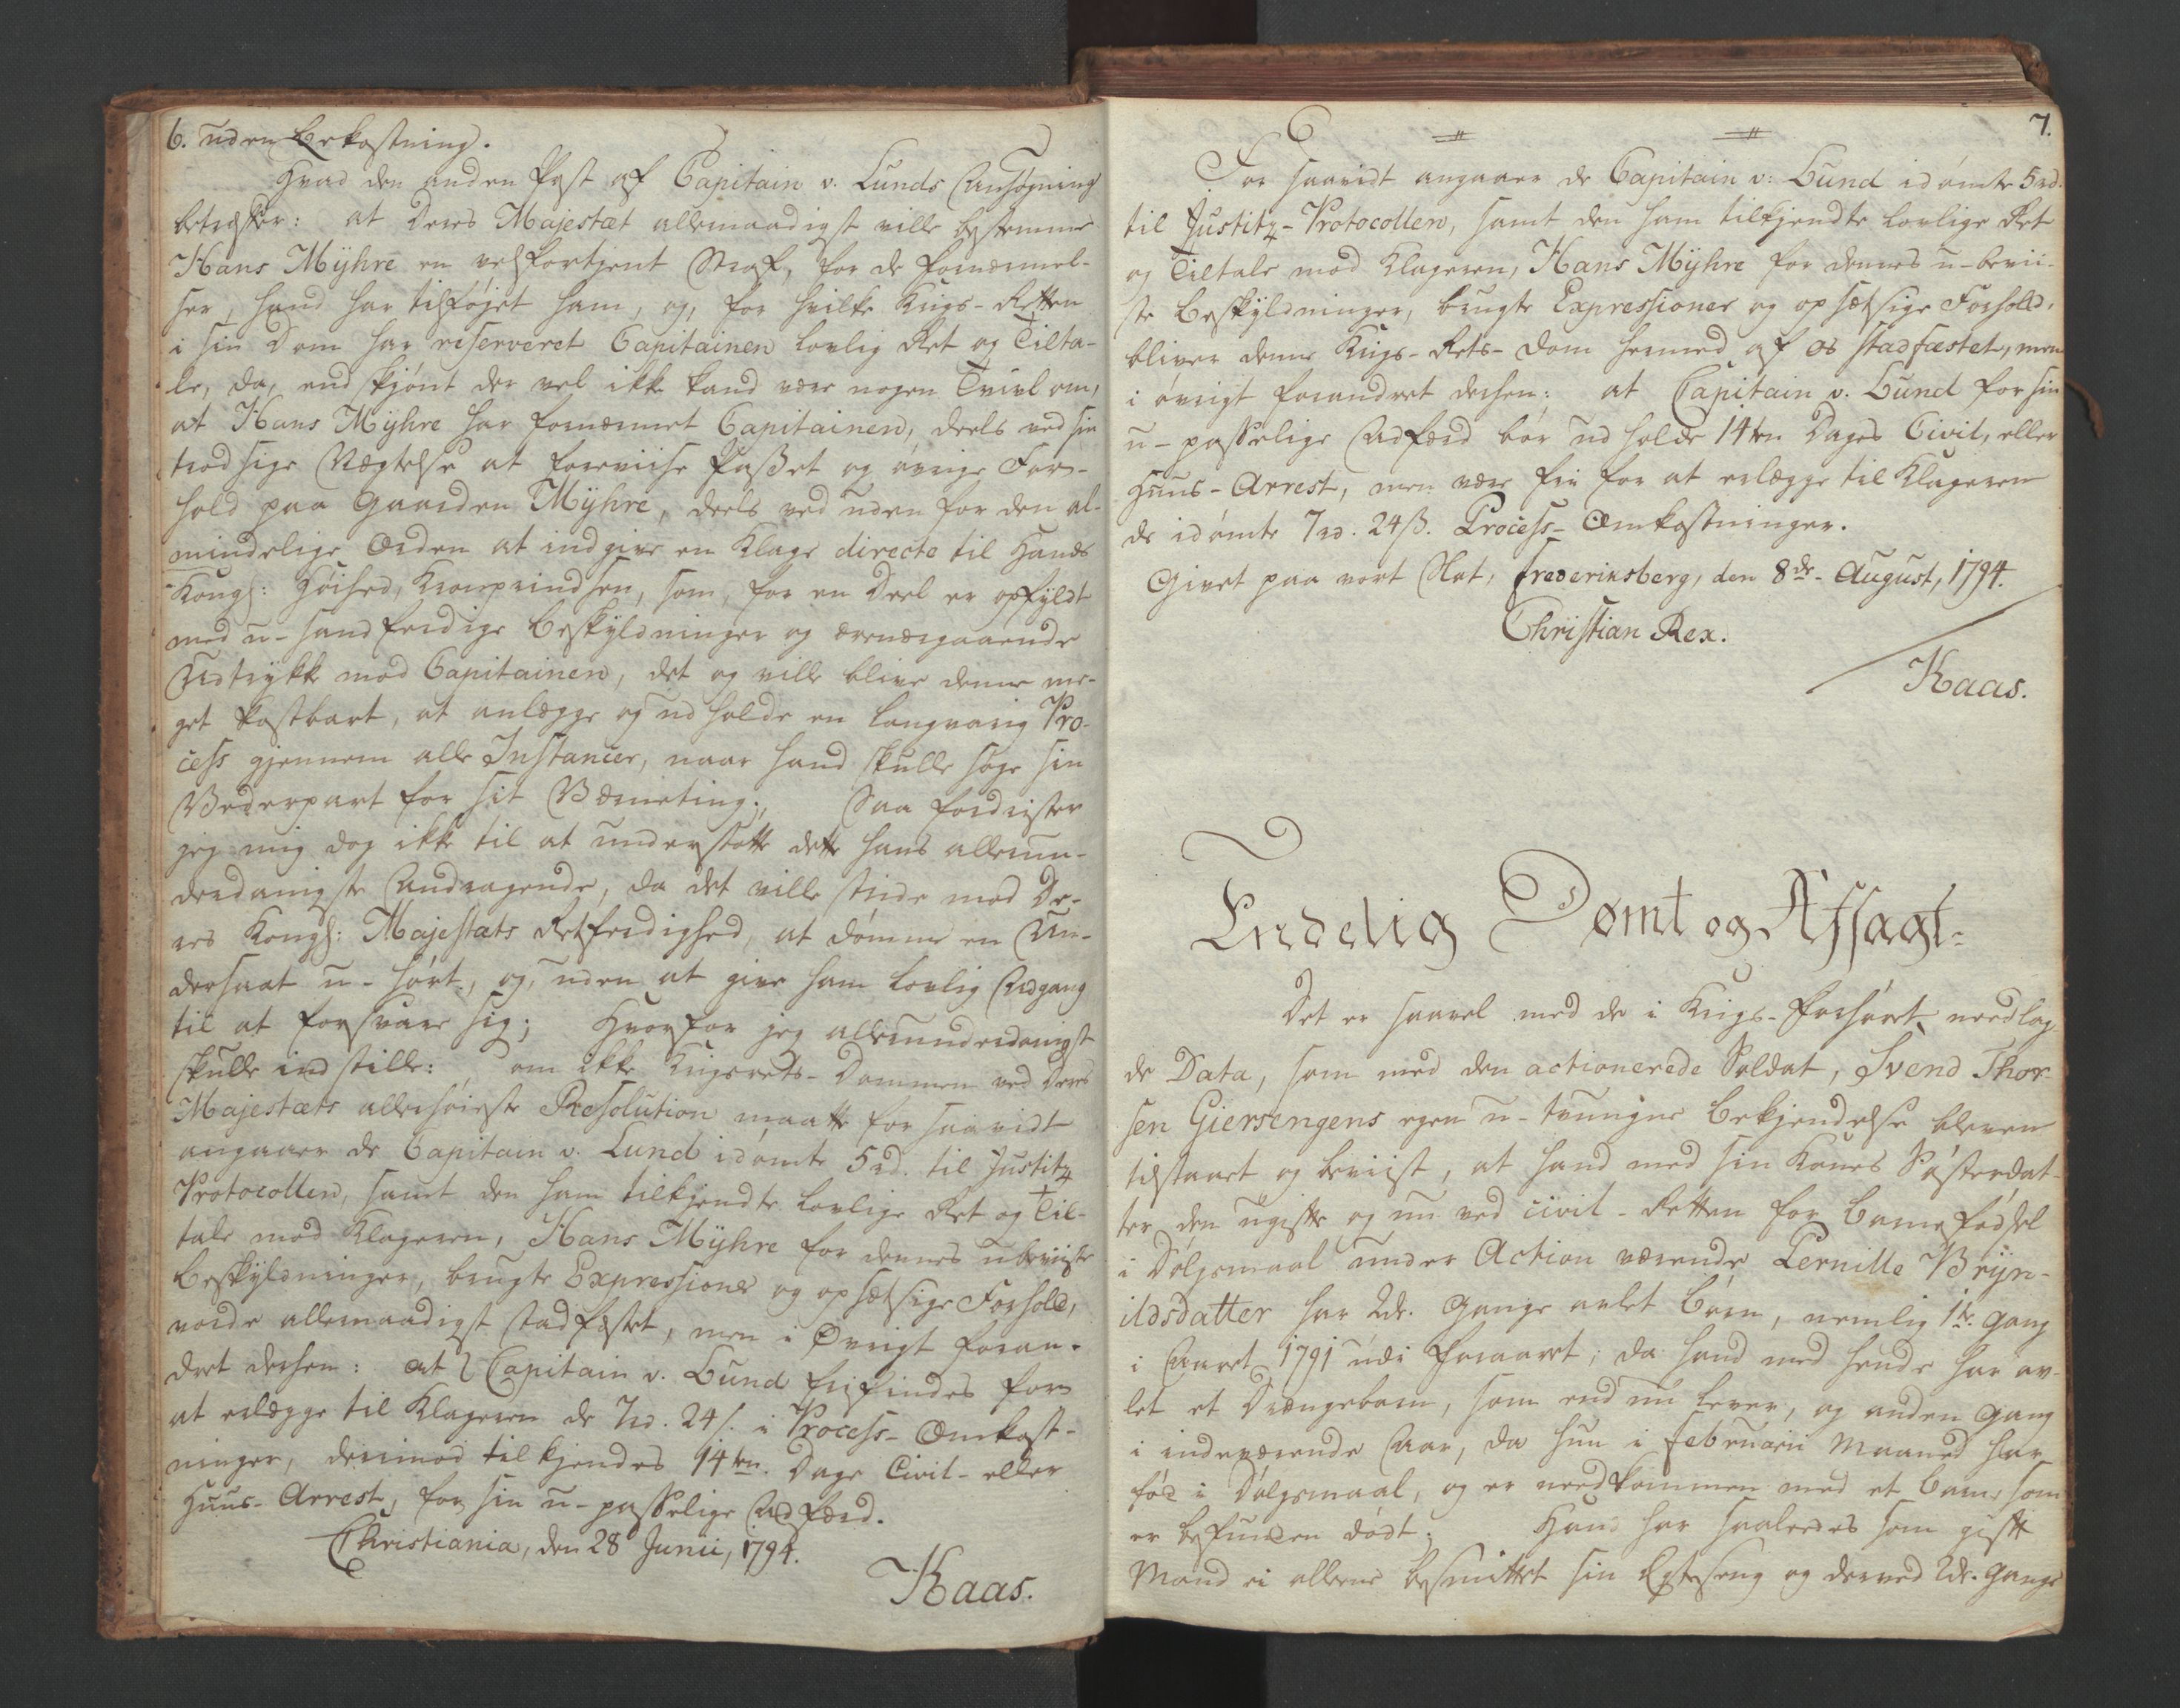 6. uden Bekostning.
Hvad den anden Post af Capitain v. Lunds Ansøgning
betræffer: at Deres Majestæt allernaadigst ville bestemme
Hans Mÿhre en velfortjent Straf, for de fornærmel-
ser, hand har tilføjet ham, og, for hvilke Krigs-Retten
i sin Dom har reserveret Capitainen lovlig Ret og Tilta-
le, da, endskjønt der vel ikke kand være nogen Tvivl om,
at Hans Mÿhre har fornærmet Capitainen, deels ved sin
trodsige Nægtelse at foreviise Passet og øvrige For-
hold paa Gaarden Mÿhre, deels ved uden for den al-
mindelige Orden at indgive en Klage directe til Hands
Kongl: Høihed, Kronprindsen, som, for en Deel er opfyldt
med u-sandferdige Beskyldninger og ærenærgaaende
Udtrykk mod Capitainen, det og ville blive denne me-
get kostbart, at anlægge og udholde en langvarig Pro-
cess gjennem alle Instancer, naar hand skulle søge sin
Vederpart for sit Værneting; Saa fordrister
jeg mig dog ikke til at understøtte dette hans allerun-
derdanigste Andragende, da det ville stride mod De-
res Kongl: Majestæts Retferdighed, at dømme en Un-
dersaat u-hørt, og, uden at give ham lovlig Adgang
til at forsvare sig; Hvorfor jeg allerunderdanigst
skulle indstille: om ikke Krigsrets-Dommen ved Deres
Majestæts allerhøieste Resolution maatte for saavidt
angaaer de Capitain v. Lund idømte 5rd. til Justitz
Protocollen, samt den ham tilkjendte lovlige Ret og Til-
tale mod Klageren, Hans Mÿhre for dennes ubeviiste
Beskyldninger, brugte Expressioner og opsætsige Forhold,
vorde allernaadigst stadfæstet, men i Øvrigt foran-
dret derhen: at Capitain v. Lund frifindes for
at erlægge til Klageren de 7rd. 24s. i Process-Omkost-
ninger, derimod tilkjendes 14ten Dage Civil- eller
Huus-Arrest, for sin u-passelige Adfærd.
Christiania, den 28 Junii, 1794.
Kaas.
7.
For saavidt angaaer de Capitain v: Lund idømte 5rd.
til Justitz-Protocollen, samt den ham tilkjendte lovlige Ret
og Tiltale mod Klageren, Hans Mÿhre for dennes u-bevii-
ste Beskyldninger, brugte Expressioner og opsætsige Forhold,
bliver denne Krigs-Rets-Dom hermed af os stadfæstet, men
i øvrigt forandret derhen: at Capitain v. Lund for sin
u-passelige Adfærd bør udholde 14ten Dages Civil, eller
Huus-Arrest, men være fri for at erlægge til Klageren
de idømte 7rd. 24ß. Process-Omkostninger.
Givet paa vort Slot, Frederiksberg, den 8de August, 1794.
Christian Rex.
Kaas.
Endelig Dømt og Afsagt:
Det er saavel med de i Krigs-Forhøret needlag-
de Data, som med den actionerede Soldat, Svend Thor-
sen Giersengens egen u-tvungne Bekjendelse bleven
tilstaaet og beviist, at hand med sin Kones Søsterdat-
ter, den ugifte og nu ved civil-Retten for Barnefødsel
i Dølgsmaal under Action værende Pernille Brÿn-
ildsdatter har 2de Gange avlet Børn, nemlig 1te Gang
i Aaret 1791 udi Foraaret, da hand med hende har av-
let et Drængebarn, som end nu lever, og anden Gang
i indeværende Aar, da hun i Februarii Maaned har
fød i Dølgsmaal, og er needkommen med et Barn, som
er befunden dødt; Hand har saaledes som gift
Mand ei allene besmittet sin Egteseng og derved 2de Gange